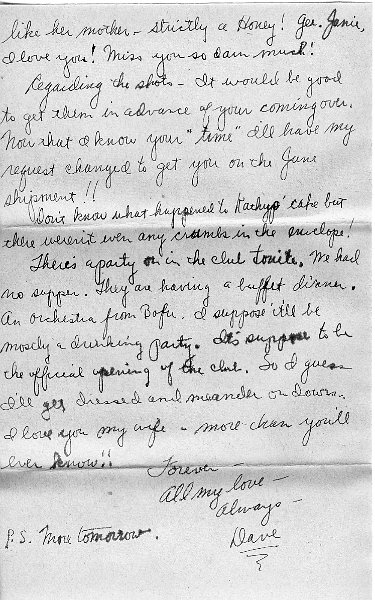 like her mother - strictly a Honey! Gee. Janie,
I love you! Miss you so darn much!
Regarding the shots - It would be good
to get them in advance of your coming over.
Now that I know your "time" I'll have my
request changed to get you on the June
shipment!!
Don't know what happened to Kachys' cake but
there weren't even any crumbs in the envelope!
There's a party on in the club tonite. We had
no supper. They are having a buffet dinner.
An orchestra from Bofu. I suppose it'll be
mostly a drinking party. It's suppose to be
the official opening of the club. So I guess
I'll get dressed and meander on down.
I love you my wife - more than you'll
ever know!!
Forever -
All my love -
Always -
Dave
P.S. More tomorrow.